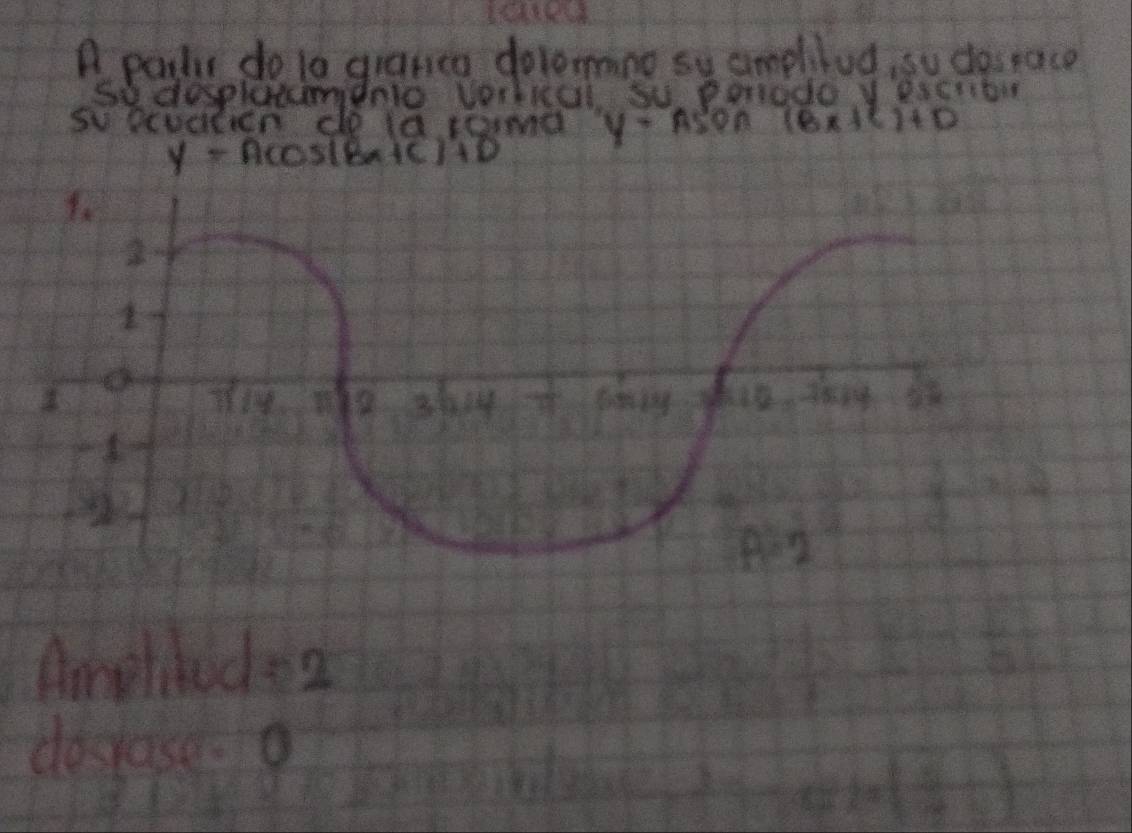 Tarea
A partir de la grafica determine su amplitud, su desface
su desplazamiento vertical, su periodo y escribir
su ecuación de la forma y = Asen (Bx+C)+D
y = Acos(Bx+C)+D
1.
2
1
0
1
π/4 π/2 3π/4 π 5π/4 3π/2 7π/4
-1
-2
A=2
Amplitud = 2
desfase = 0